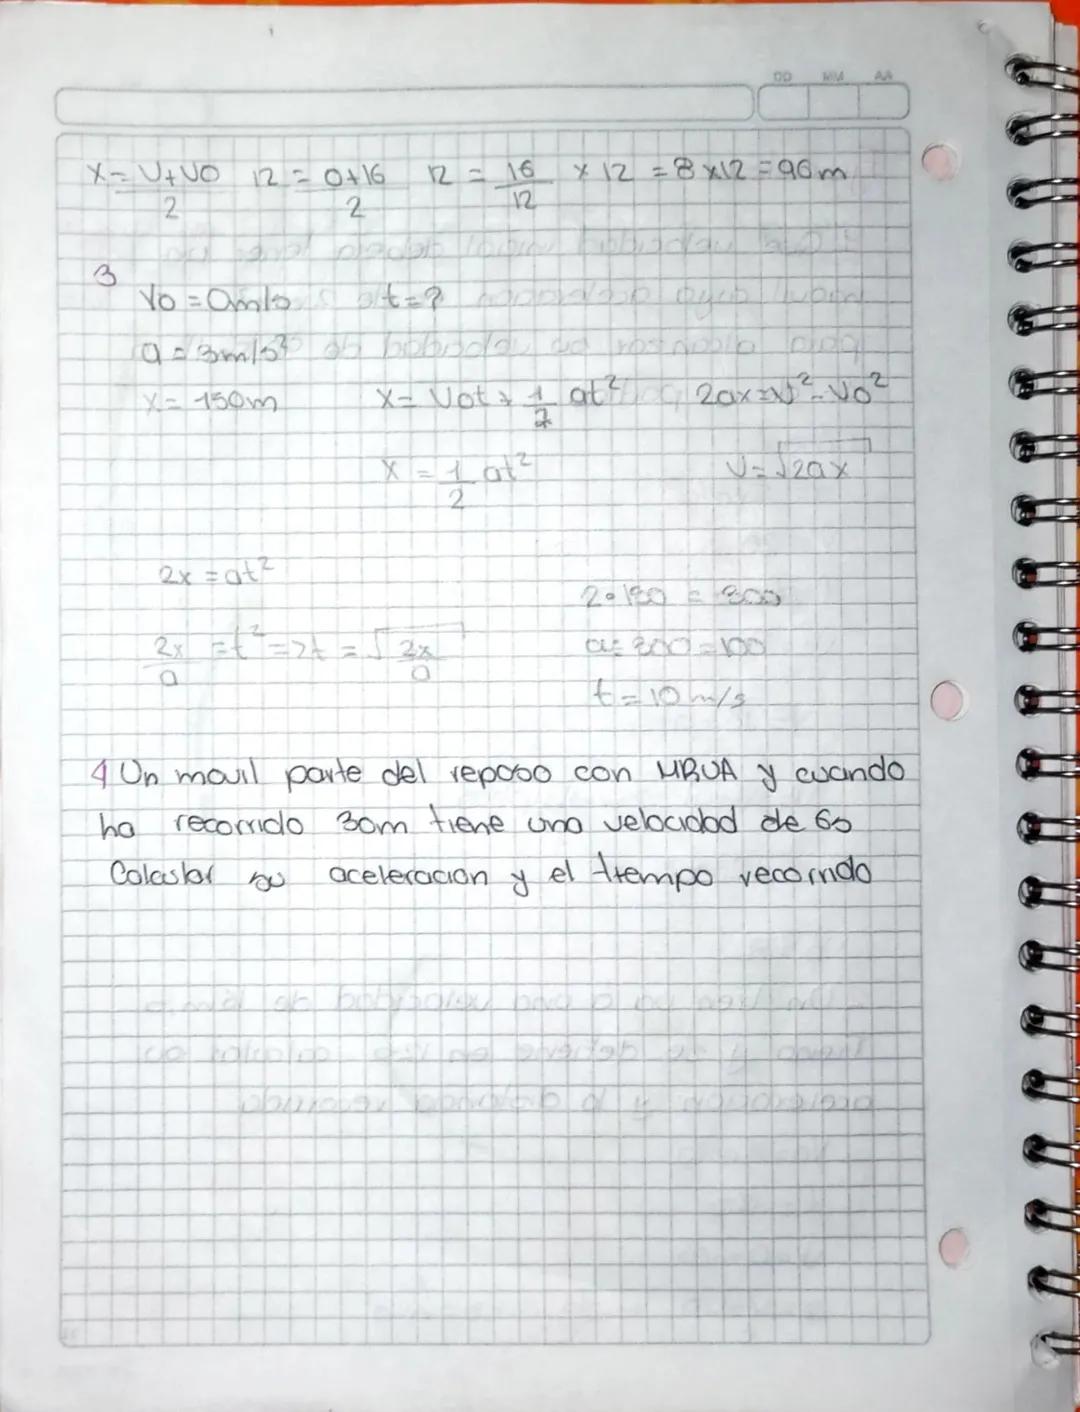 DD MM AA
X = V+VO/2 12 = 0+16/2 12 = 16/12 x 12 = 8 x12 = 96m
3
Vo = 0m/s t = ?
a = 3m/s²
X = 150m X = Vot + 1/2 at² 2ax = v² - Vo²
X = 1/2 at² V = √2ax
2x = at²
2•150 = 300
2x/a = t² => t = √2x/a a = 300 = 100
t = 10 m/s
4 Un movil parte del reposo con MRUA y cuando
ha recorrido 30m tiene una velocidad de 6s
Calcular su aceleracion y el tiempo recorrido